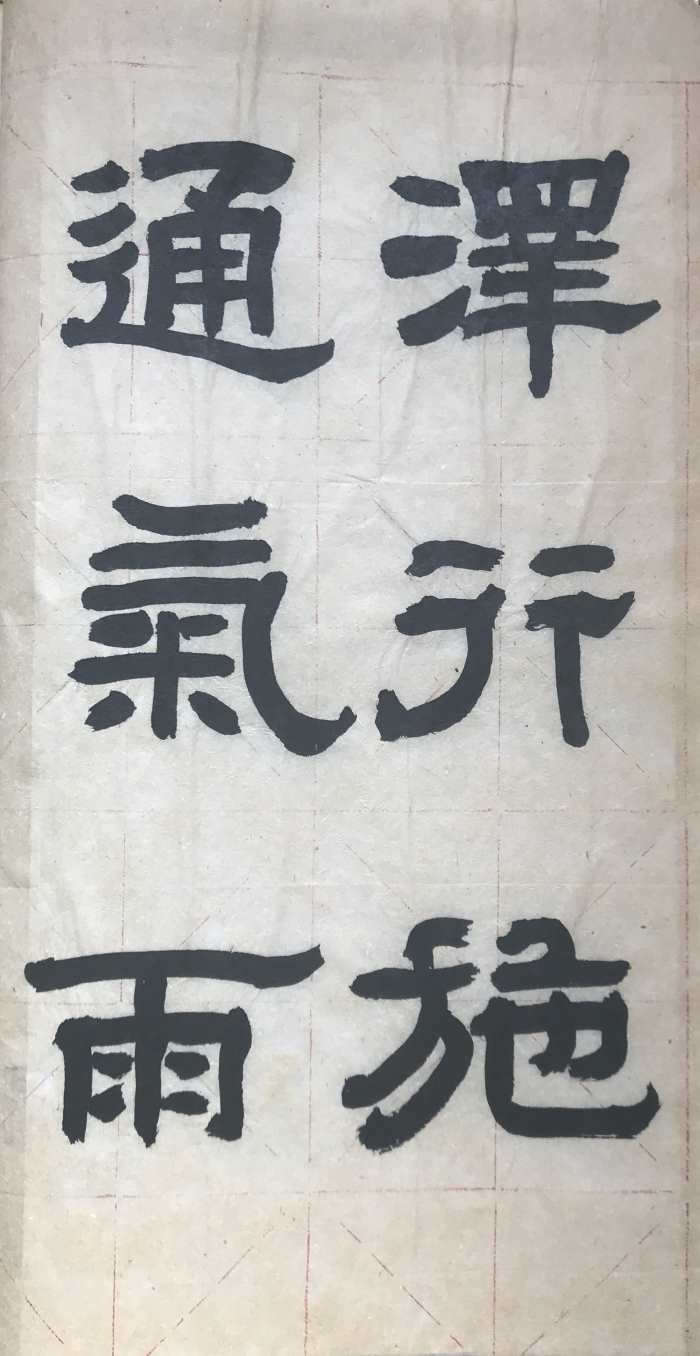 澤行施
通氣雨